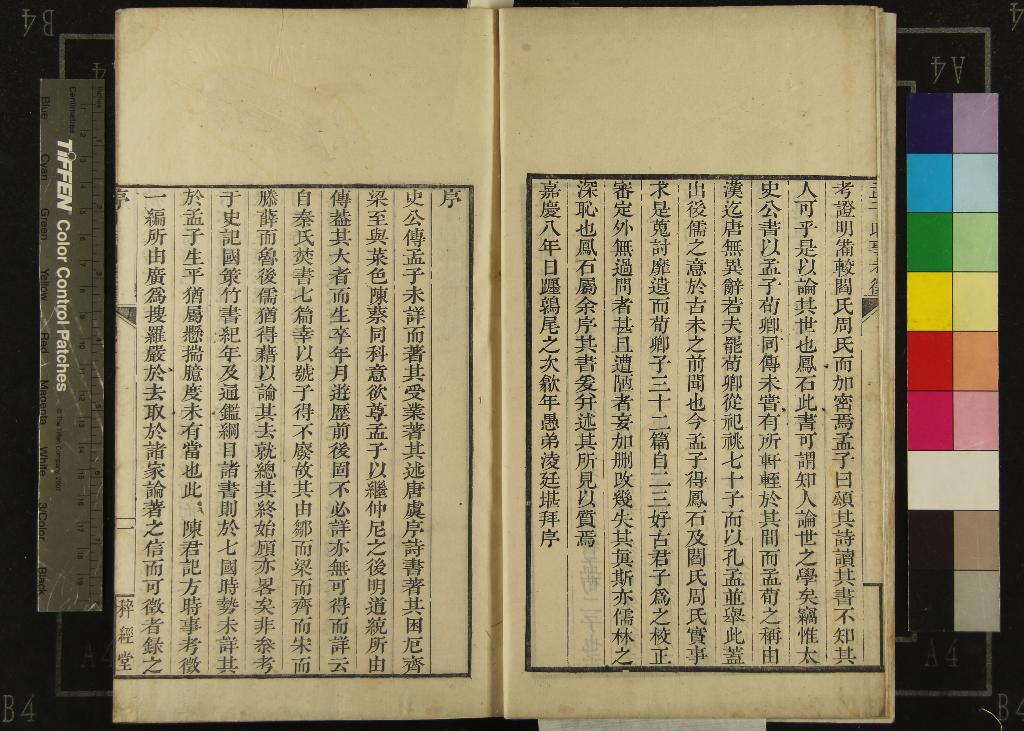 考證明備較閻氏周氏而加密焉孟子曰頌其詩讀其書不知其
人可乎是以論其世也鳳石此書可謂知人論世之學矣竊惟太
史公書以孟子荀卿同傳未嘗有所軒輊於其間而孟荀之稱由
漢迄唐無異辭若夫罷荀卿從祀祧七十子而以孔孟並舉此蓋
出後儒之意於古未之前聞也今孟子得鳳石及閻氏周氏實事
求是蒐討靡遺而荀卿子三十二篇自二三好古君子為之校正
審定外無過問者甚且遭陋者妄加删改幾失其真斯亦儒林之
深恥也鳳石屬余序其書爰弁述其所見以質焉
嘉慶八年日躔鶉尾之次歙年愚弟淩廷堪拜序
序
史公傳孟子未詳而著其受業著其述唐虞序詩書著其困厄齊
梁至與菜色陳蔡同科意欲尊孟子以繼仲尼之後明道統所由
傳葢其大者而生卒年月遊歷前後固不必詳亦無可得而詳云
自秦氏焚書七篇幸以號子得不廢故其由鄒而梁而齊而宋而
滕薛而魯後儒猶得藉以論其去就總其終始顧亦畧矣非叅考
于史記國策竹書紀年及通鑑綱目諸書則於七國時勢未詳其
於孟子生平猶屬懸揣臆度未有當也此 陳君記方時事考徵
一編所由廣為搜羅嚴於去取於諸家論著之信而可徵者錄之
序
一
稡經堂
TIFFEN Color Control Patches
© The Tiffen Company, 2007
Centimetres
Inches
Blue
Cyan
Green
Yellow
Red
Magenta
White
3/Color
Black
B4
A4
A4
B4
A4
B4